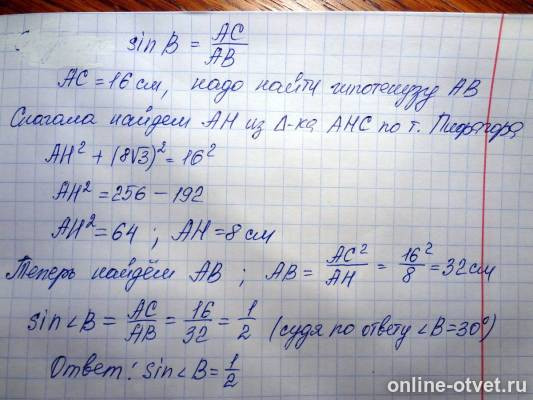 sin B = AC/AB
AC = 16 см, надо найти гипотенузу AB
Сначала найдем AH из Δ-ка AHC по т. Пифагора
AH² + (8√3)² = 16²
AH² = 256 − 192
AH² = 64 ; AH = 8 см
Теперь найдём AB ; AB = AC²/AH = 16²/8 = 32 см
sin∠B = AC/AB = 16/32 = 1/2 (судя по ответу ∠B = 30°)
Ответ: sin∠B = 1/2
online-otvet.ru